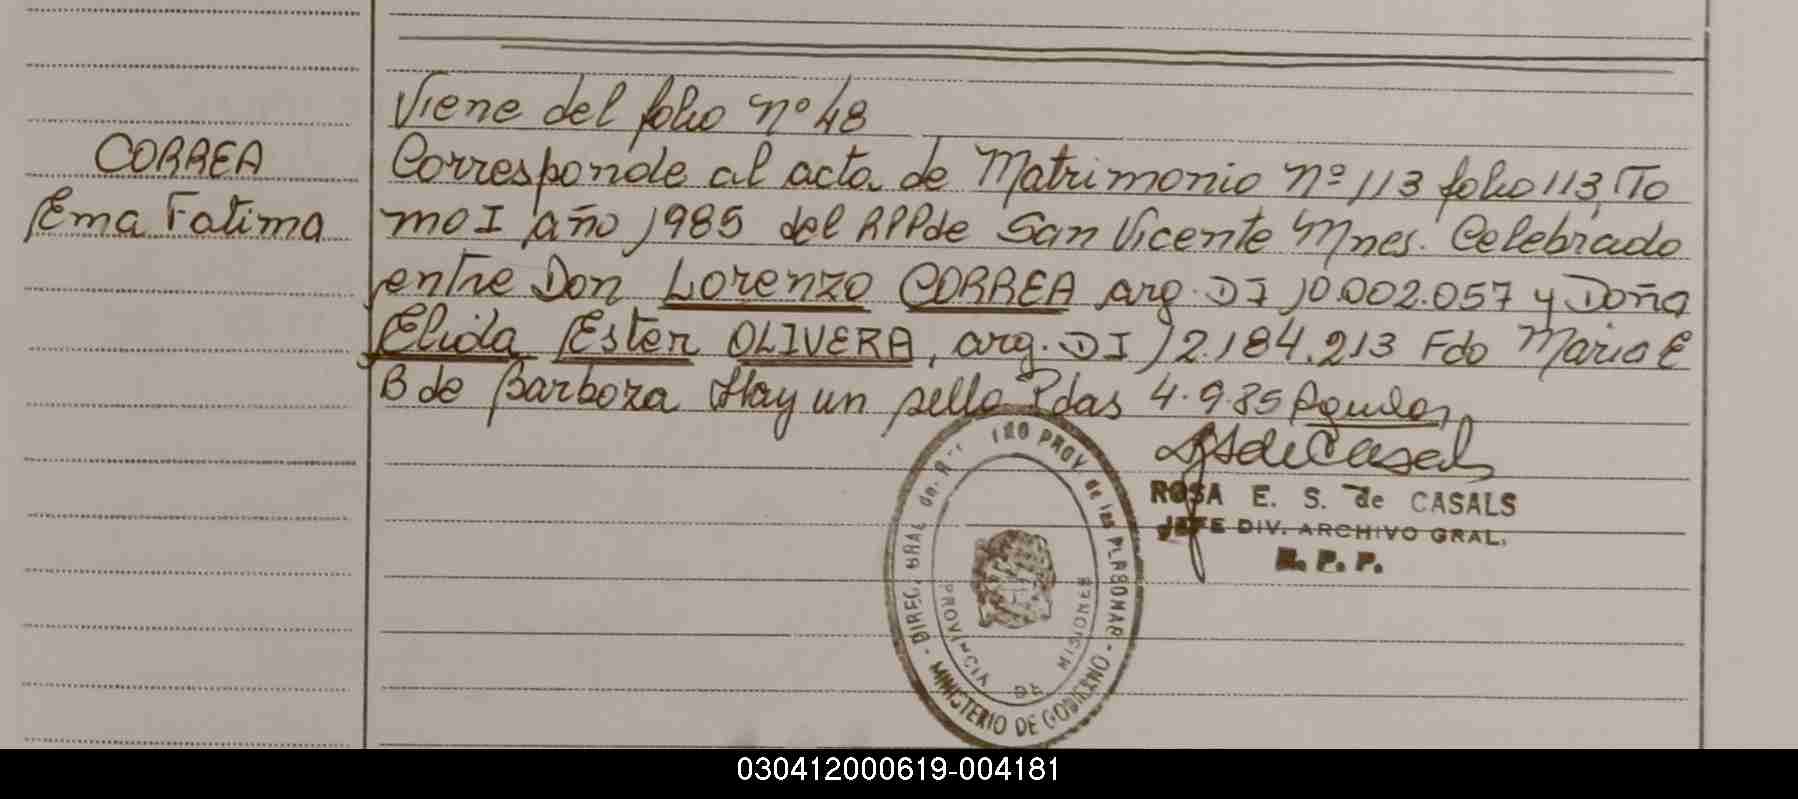 Viene del folio nº 48
CORREA
Ema Fatima
Corresponde al acta de Matrimonio nº 113 folio 113, To
mo I año 1985 del RPP de San Vicente Mnes. Celebrado
entre Don Lorenzo CORREA arg. DI 10.002.057 y Doña
Elida Ester OLIVERA, arg. DI 12.184.213 Fdo Maria E
B de Barboza Hay un sello Pdas 4.9.85
ROSA E. S. de CASALS
JEFE DIV. ARCHIVO GRAL.
R. P. P.
PROV. de las PERSONAS - MINISTERIO DE GOBIERNO - DIREC. GRAL.
PROVINCIA DE MISIONES
030412000619-004181